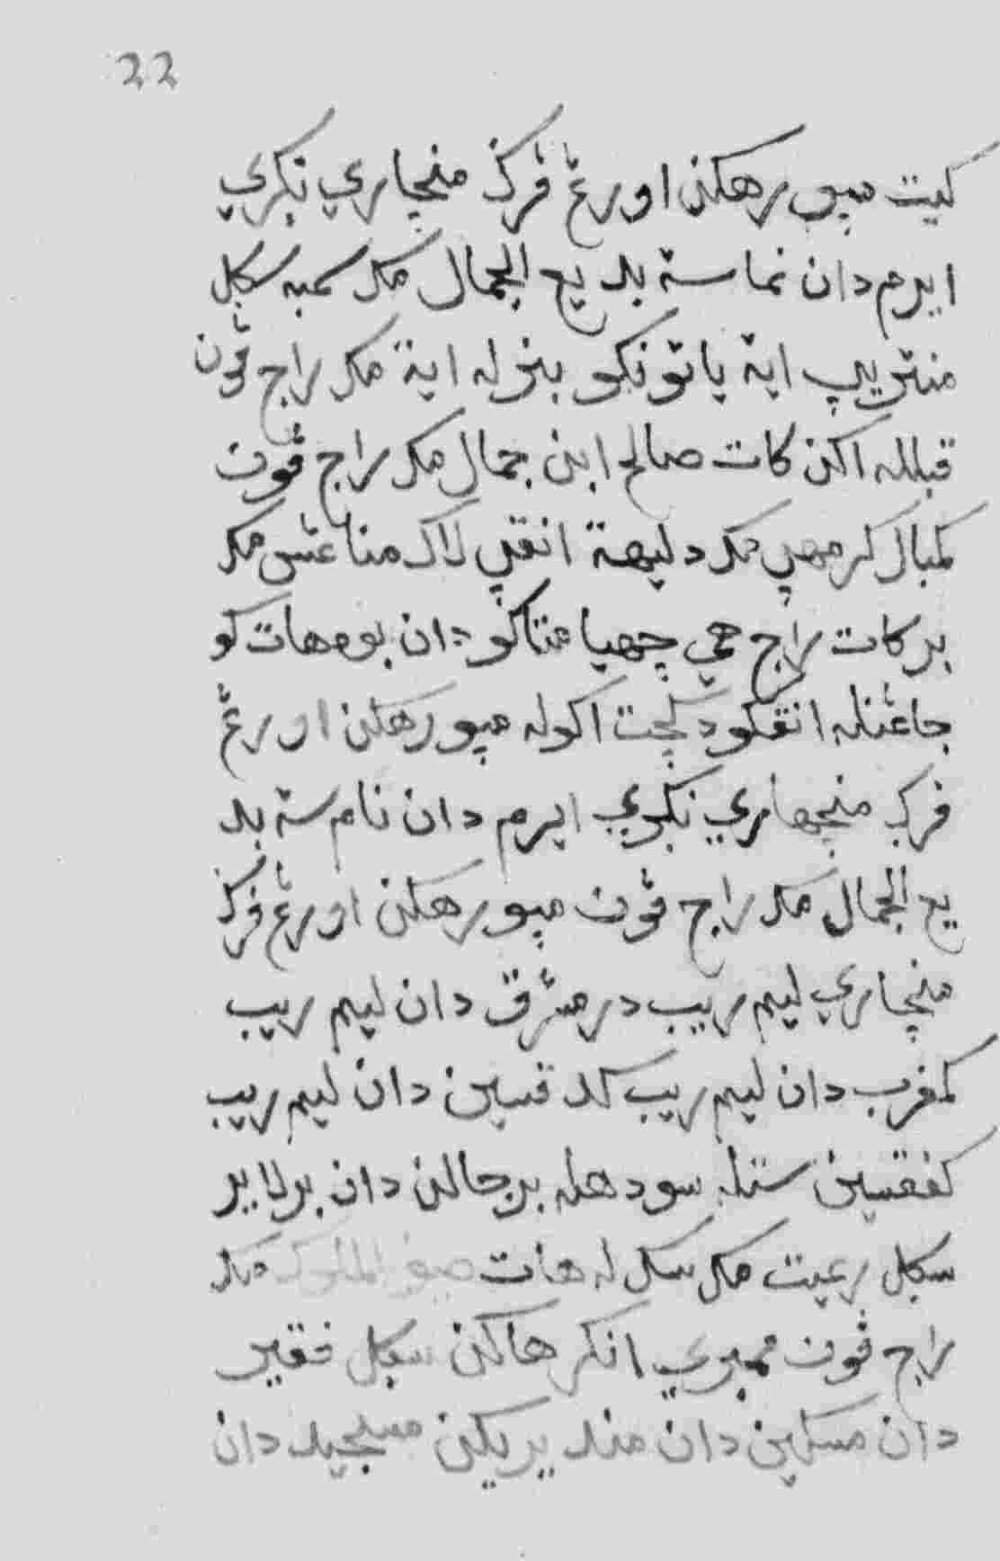 22
كيت ميورهكن اورڠ ڤرڬ منچاري نكري
ايرم دان نماسة بديع الجمال مك سمبه سكل
منتري ايت ياتونكو بنرله اية مك راج ڤون
قبلله اكن كات صالح ابن جمال مك راج ڤون
كمبال كرمهي مك دليهة انقي لاك مناڠس مك
بركات راج هي چهيا متاكو دان بوه هات كو
جاڠنله انقكو دكچت اكوله ميورهكن اورڠ
ڤرڬ منچهاري نكري ايرم دان نام سة بد
يع الجمال مك راج ڤون ميورهكن اورڠ ڤرڬ
منچاري ليم ريب درمشرق دان ليم ريب
كمغرب دان ليم ريب كد قسين دان ليم ريب
كفقسين ستله سودهله برجالن دان برلاير
سكل رعيت مك سكله هات صيف الملوك مك
راج ڤون ممبري انكرهاكن سكل فقير
دان مسكين دان منديريكن مسجيد دان